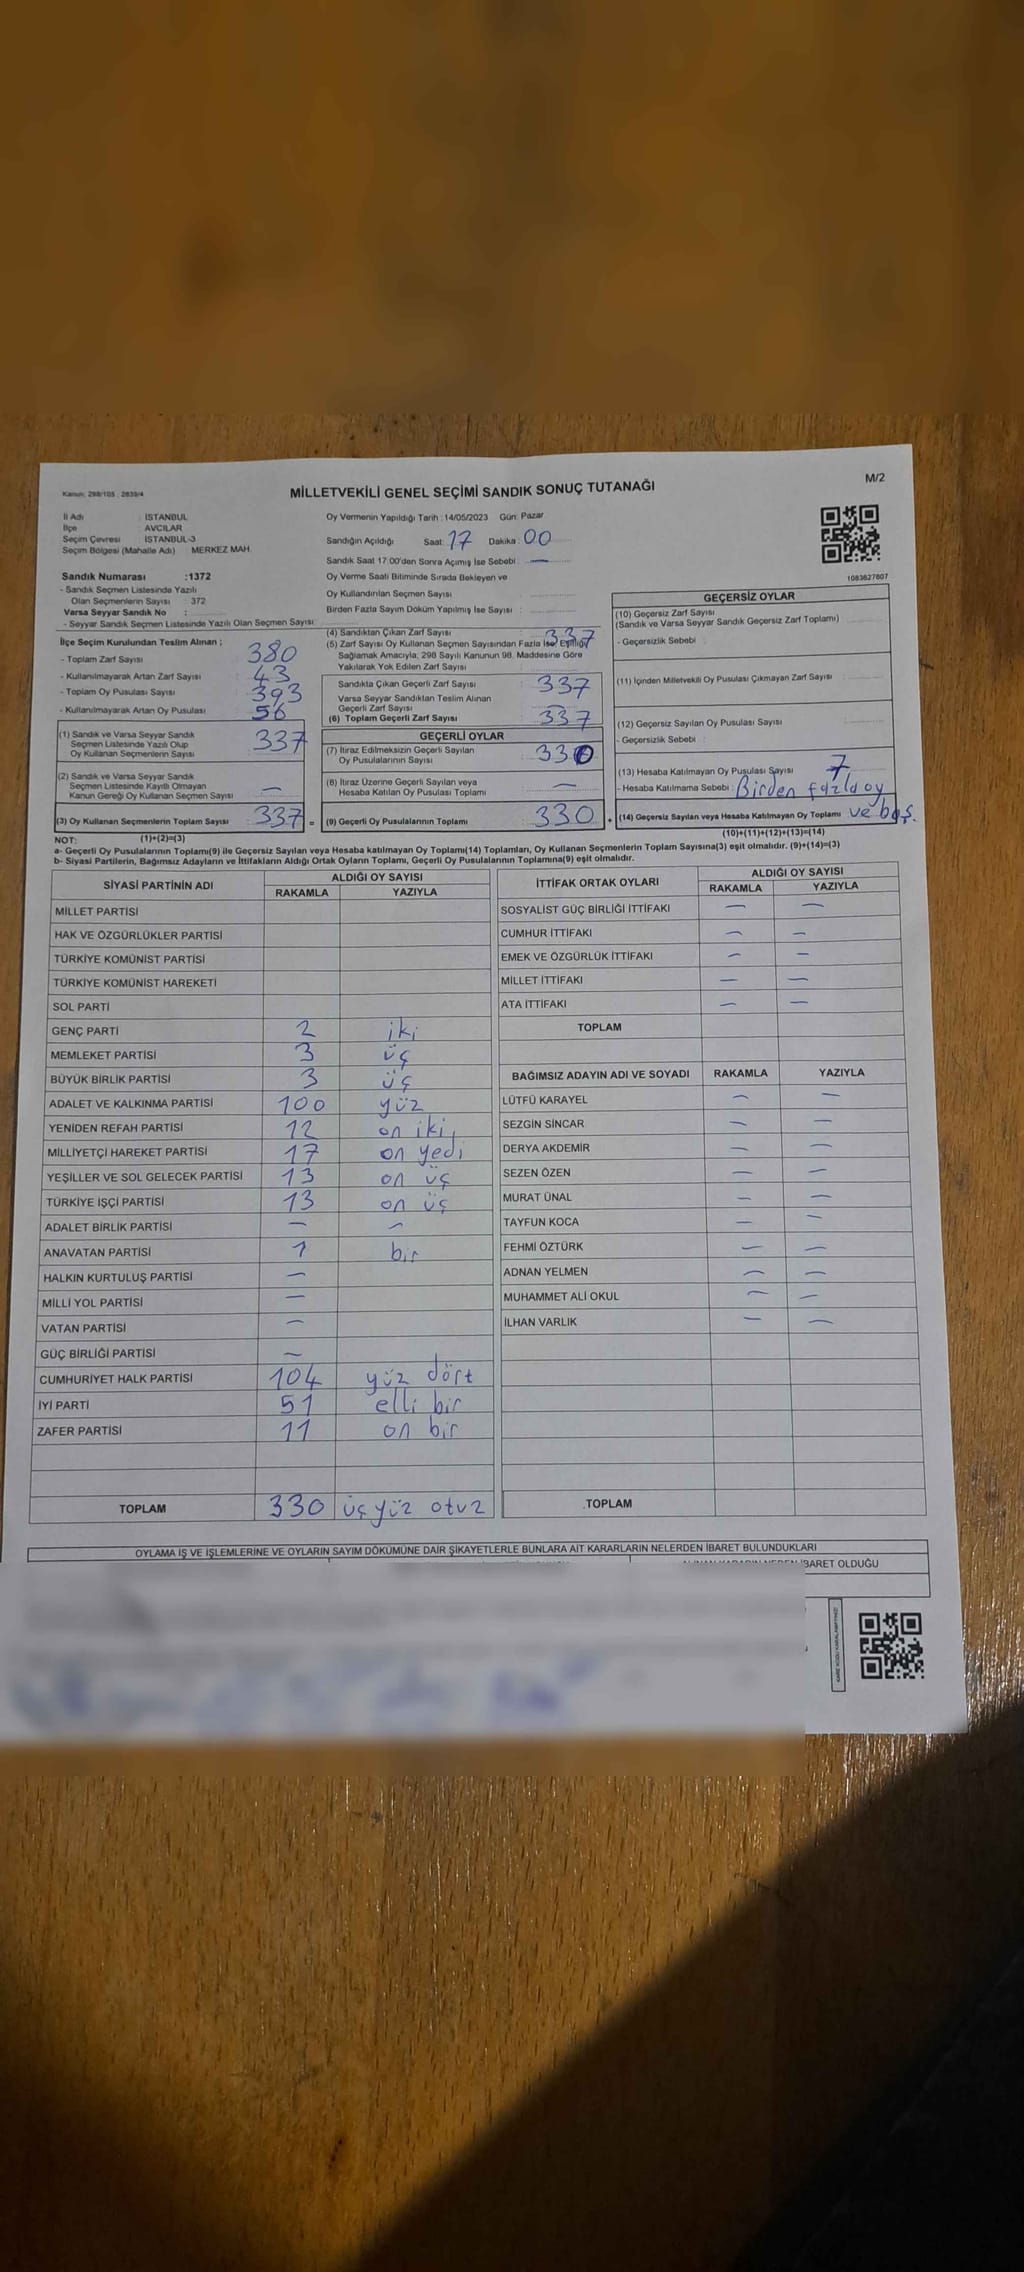 Kanun: 298/105 , 2839/4
MİLLETVEKİLİ GENEL SEÇİMİ SANDIK SONUÇ TUTANAĞI
M/2
İl Adı : İSTANBUL
İlçe : AVCILAR
Seçim Çevresi : İSTANBUL-3
Seçim Bölgesi (Mahalle Adı) MERKEZ MAH.
Oy Vermenin Yapıldığı Tarih : 14/05/2023 Gün: Pazar
Sandığın Açıldığı Saat: 17 Dakika : 00
Sandık Saat 17:00'den Sonra Açmış İse Sebebi : —
Oy Verme Saati Bitiminde Sırada Bekleyen ve
Oy Kullandırılan Seçmen Sayısı
Birden Fazla Sayım Döküm Yapılmış İse Sayısı :
1083627807
Sandık Numarası :1372
- Sandık Seçmen Listesinde Yazılı
Olan Seçmenlerin Sayısı : 372
Varsa Seyyar Sandık No :
- Seyyar Sandık Seçmen Listesinde Yazılı Olan Seçmen Sayısı:
İlçe Seçim Kurulundan Teslim Alınan ;
- Toplam Zarf Sayısı 380
- Kullanılmayarak Artan Zarf Sayısı 43
- Toplam Oy Pusulası Sayısı 393
- Kullanılmayarak Artan Oy Pusulası 56
(1) Sandık ve Varsa Seyyar Sandık
Seçmen Listesinde Yazılı Olup
Oy Kullanan Seçmenlerin Sayısı 337
(2) Sandık ve Varsa Seyyar Sandık
Seçmen Listesinde Kayıtlı Olmayan
Kanun Gereği Oy Kullanan Seçmen Sayısı —
(3) Oy Kullanan Seçmenlerin Toplam Sayısı 337 =
(1)+(2)=(3)
(4) Sandıktan Çıkan Zarf Sayısı 337
(5) Zarf Sayısı Oy Kullanan Seçmen Sayısından Fazla İse, Eşitliği
Sağlamak Amacıyla; 298 Sayılı Kanunun 98. Maddesine Göre
Yakılarak Yok Edilen Zarf Sayısı
Sandıkta Çıkan Geçerli Zarf Sayısı 337
Varsa Seyyar Sandıktan Teslim Alınan
Geçerli Zarf Sayısı —
(6) Toplam Geçerli Zarf Sayısı 337
GEÇERLİ OYLAR
(7) İtiraz Edilmeksizin Geçerli Sayılan
Oy Pusulalarının Sayısı 330
(8) İtiraz Üzerine Geçerli Sayılan veya
Hesaba Katılan Oy Pusulası Toplamı —
(9) Geçerli Oy Pusulalarının Toplamı 330 +
GEÇERSİZ OYLAR
(10) Geçersiz Zarf Sayısı
(Sandık ve Varsa Seyyar Sandık Geçersiz Zarf Toplamı)
- Geçersizlik Sebebi :
(11) İçinden Milletvekili Oy Pusulası Çıkmayan Zarf Sayısı
(12) Geçersiz Sayılan Oy Pusulası Sayısı
- Geçersizlik Sebebi :
(13) Hesaba Katılmayan Oy Pusulası Sayısı 7
- Hesaba Katılmama Sebebi : Birden fazla oy
(14) Geçersiz Sayılan veya Hesaba Katılmayan Oy Toplamı ve boş.
(10)+(11)+(12)+(13)=(14)
NOT:
a- Geçerli Oy Pusulalarının Toplamı(9) ile Geçersiz Sayılan veya Hesaba katılmayan Oy Toplamı(14) Toplamları, Oy Kullanan Seçmenlerin Toplam Sayısına(3) eşit olmalıdır. (9)+(14)=(3)
b- Siyasi Partilerin, Bağımsız Adayların ve İttifakların Aldığı Ortak Oyların Toplamı, Geçerli Oy Pusulalarının Toplamına(9) eşit olmalıdır.
SİYASİ PARTİNİN ADI ALDIĞI OY SAYISI
RAKAMLA YAZIYLA
MİLLET PARTİSİ
HAK VE ÖZGÜRLÜKLER PARTİSİ
TÜRKİYE KOMÜNİST PARTİSİ
TÜRKİYE KOMÜNİST HAREKETİ
SOL PARTİ
GENÇ PARTİ 2 iki
MEMLEKET PARTİSİ 3 üç
BÜYÜK BİRLİK PARTİSİ 3 üç
ADALET VE KALKINMA PARTİSİ 100 yüz
YENİDEN REFAH PARTİSİ 12 on iki
MİLLİYETÇİ HAREKET PARTİSİ 17 on yedi
YEŞİLLER VE SOL GELECEK PARTİSİ 13 on üç
TÜRKİYE İŞÇİ PARTİSİ 13 on üç
ADALET BİRLİK PARTİSİ — —
ANAVATAN PARTİSİ 1 bir
HALKIN KURTULUŞ PARTİSİ —
MİLLİ YOL PARTİSİ —
VATAN PARTİSİ —
GÜÇ BİRLİĞİ PARTİSİ —
CUMHURİYET HALK PARTİSİ 104 yüz dört
İYİ PARTİ 51 elli bir
ZAFER PARTİSİ 11 on bir
TOPLAM 330 üç yüz otuz
İTTİFAK ORTAK OYLARI ALDIĞI OY SAYISI
RAKAMLA YAZIYLA
SOSYALİST GÜÇ BİRLİĞİ İTTİFAKI — —
CUMHUR İTTİFAKI — —
EMEK VE ÖZGÜRLÜK İTTİFAKI — —
MİLLET İTTİFAKI — —
ATA İTTİFAKI — —
TOPLAM
BAĞIMSIZ ADAYIN ADI VE SOYADI RAKAMLA YAZIYLA
LÜTFÜ KARAYEL — —
SEZGİN SİNCAR — —
DERYA AKDEMİR — —
SEZEN ÖZEN — —
MURAT ÜNAL — —
TAYFUN KOCA — —
FEHMİ ÖZTÜRK — —
ADNAN YELMEN — —
MUHAMMET ALİ OKUL — —
İLHAN VARLIK — —
TOPLAM
OYLAMA İŞ VE İŞLEMLERİNE VE OYLARIN SAYIM DÖKÜMÜNE DAİR ŞİKAYETLERLE BUNLARA AİT KARARLARIN NELERDEN İBARET BULUNDUKLARI
İBARET OLDUĞU